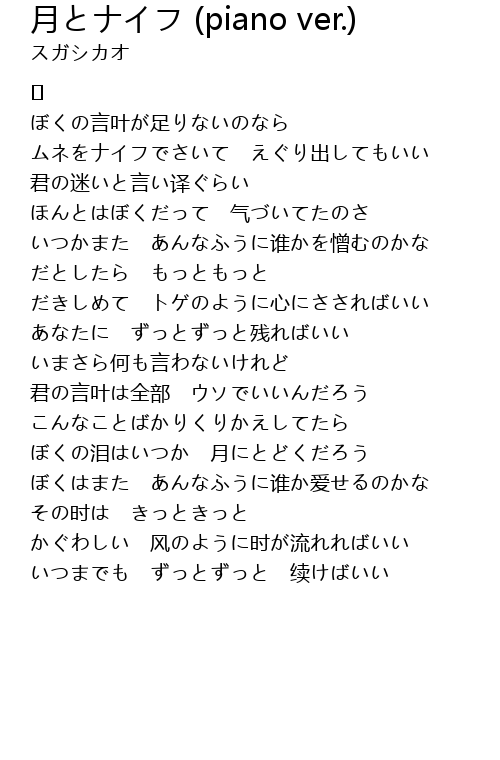 月とナイフ (piano ver.)
スガシカオ
[]
ぼくの言叶が足りないのなら
ムネをナイフでさいて　えぐり出してもいい
君の迷いと言い译ぐらい
ほんとはぼくだって　气づいてたのさ
いつかまた　あんなふうに谁かを憎むのかな
だとしたら　もっともっと
だきしめて　トゲのように心にさされればいい
あなたに　ずっとずっと残ればいい
いまさら何も言わないけれど
君の言叶は全部　ウソでいいんだろう
こんなことばかりくりかえしてたら
ぼくの泪はいつか　月にとどくだろう
ぼくはまた　あんなふうに谁か爱せるのかな
その时は　きっときっと
かぐわしい　风のように时が流れればいい
いつまでも　ずっとずっと　续けばいい